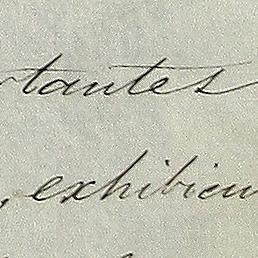 rtantes
, exhibicu